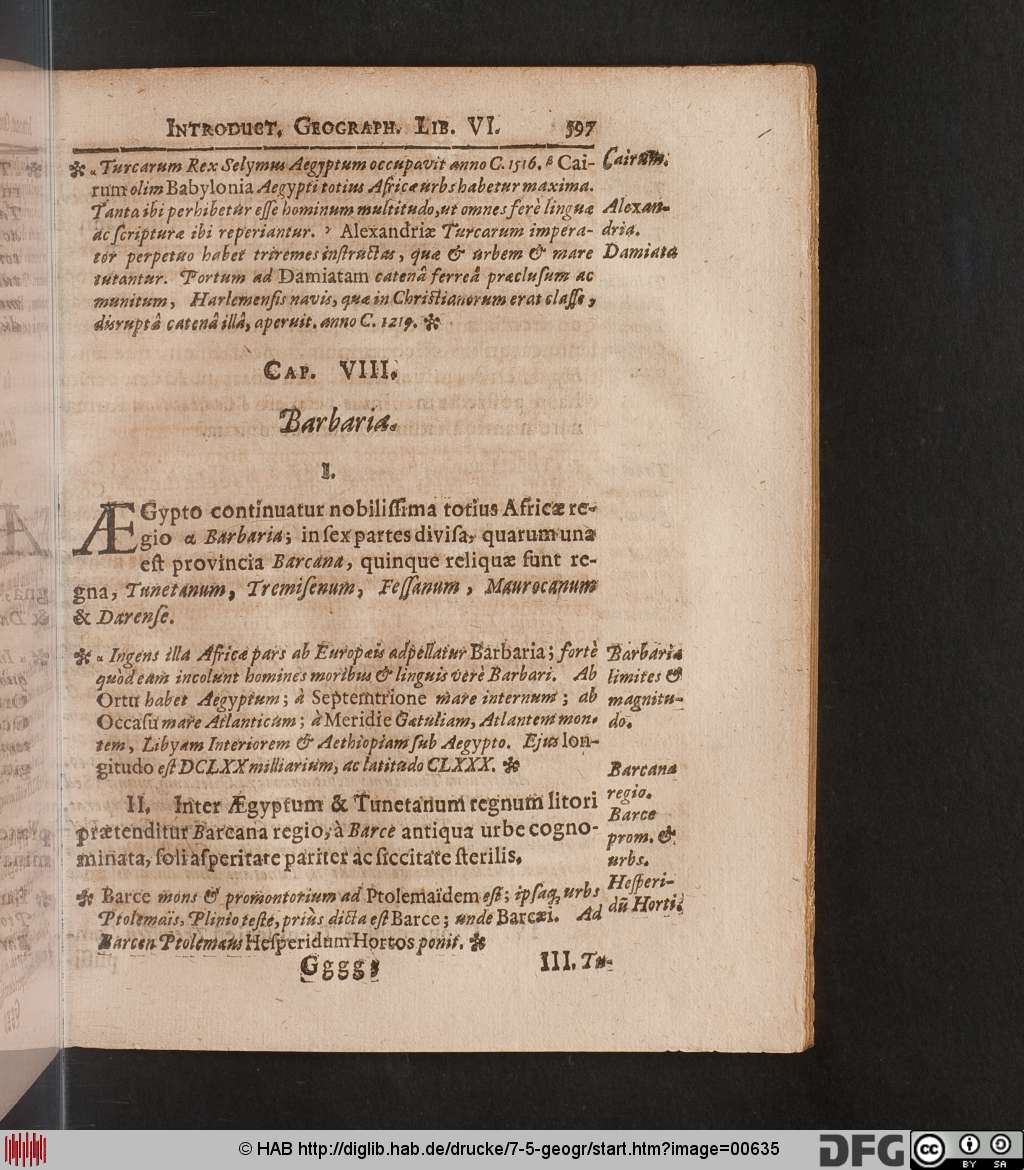 INTRODUCT. GEOGRAPH. LIB. VI. 597
* α Turcarum Rex Selymus Aegyptum occupavit anno C. 1516. β Cai-
rum olim Babylonia Aegypti totius Africæ urbs habetur maxima.
Tanta ibi perhibetur esse hominum multitudo, ut omnes ferè linguæ
ac scripturæ ibi reperiantur. γ Alexandriæ Turcarum impera-
tor perpetuo habet triremes instructas, quæ & urbem & mare
tutantur. Portum ad Damiatam catenâ ferreâ præclusum ac
munitum, Harlemensis navis, quæ in Christianorum erat classe,
disruptâ catenâ illâ, aperuit. anno C. 1219. *
Cairum.
Alexan-
dria.
Damiata
CAP. VIII.
Barbaria.
I.
ÆGypto continuatur nobilissima totius Africæ re-
gio α Barbaria; in sex partes divisa, quarum una
est provincia Barcana, quinque reliquæ sunt re-
gna, Tunetanum, Tremisenum, Fessanum, Maurocanum
& Darense.
* α Ingens illa Africæ pars ab Europæis adpellatur Barbaria; fortè
quòd eam incolunt homines moribus & linguis verè Barbari. Ab
Ortu habet Aegyptum; à Septemtrione mare internum; ab
Occasu mare Atlanticum; à Meridie Gætuliam, Atlantem mon-
tem, Libyam Interiorem & Aethiopiam sub Aegypto. Ejus lon-
gitudo est DCLXX milliarium, ac latitudo CLXXX. *
Barbariæ
limites &
magnitu-
do.
II. Inter Ægyptum & Tunetanum regnum litori
prætenditur Barcana regio, à Barce antiqua urbe cogno-
minata, soli asperitate pariter ac siccitate sterilis.
Barcana
regio.
Barce
prom. &
urbs.
Hesperi-
dũ Horti.
* Barce mons & promontorium ad Ptolemaïdem est; ipsaq; urbs
Ptolemaïs, Plinio teste, priùs dicta est Barce; unde Barcæi. Ad
Barcen Ptolemæus Hesperidum Hortos ponit. *
Gggg 3 III. Tu-
© HAB http://diglib.hab.de/drucke/7-5-geogr/start.htm?image=00635
DFG
cc BY SA